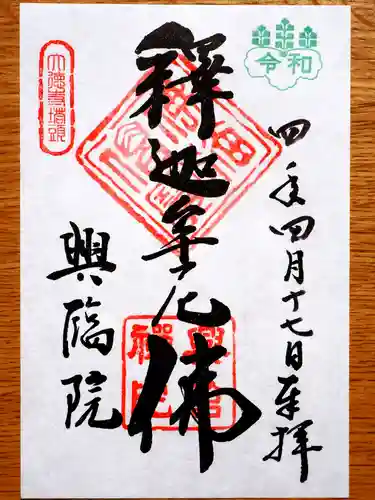 令和
四年四月十七日奉拝
大徳寺塔頭
釋迦牟尼佛
興臨院